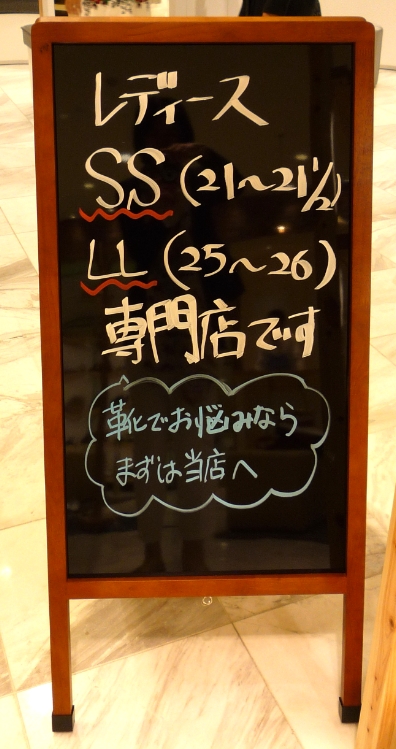 レディース
SS(21〜21 1/2)
LL(25〜26)
専門店です
靴でお悩みなら
まずは当店へ